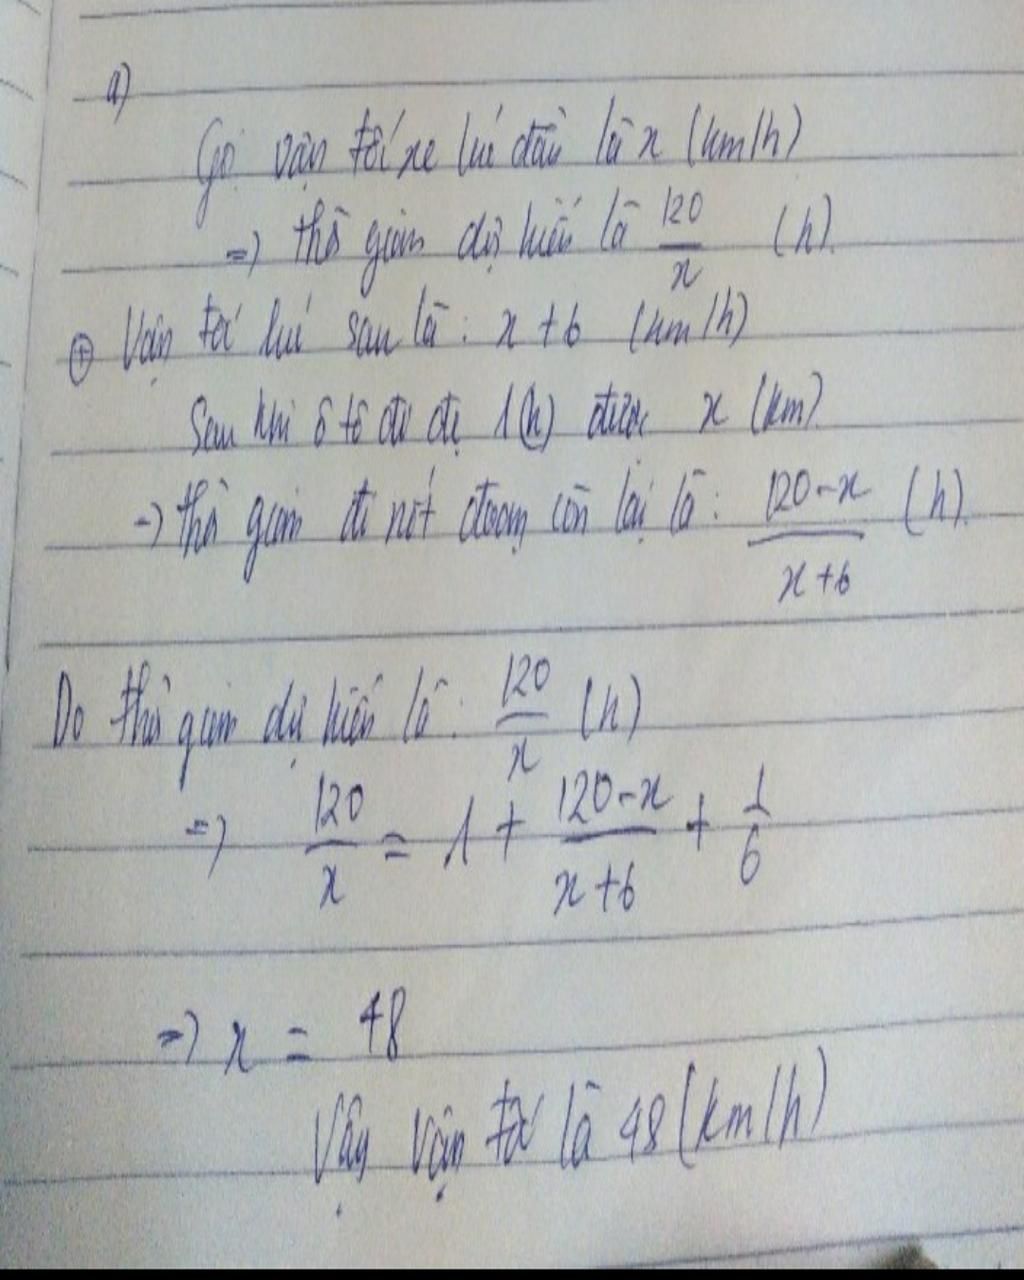 a)
Gọi vận tốc xe lúc đầu là x (km/h)
=) thời gian dự kiến là 120/x (h)
⊕ Vận tốc lúc sau là : x + 6 (km/h)
Sau khi ô tô đi đc 1(h) được x (km)
=) thời gian đi nốt đoạn còn lại là : (120-x)/(x+6) (h)
Do thời gian dự kiến là : 120/x (h)
=) 120/x = 1 + (120-x)/(x+6) + 1/6
=) x = 48
Vậy vận tốc là 48 (km/h)